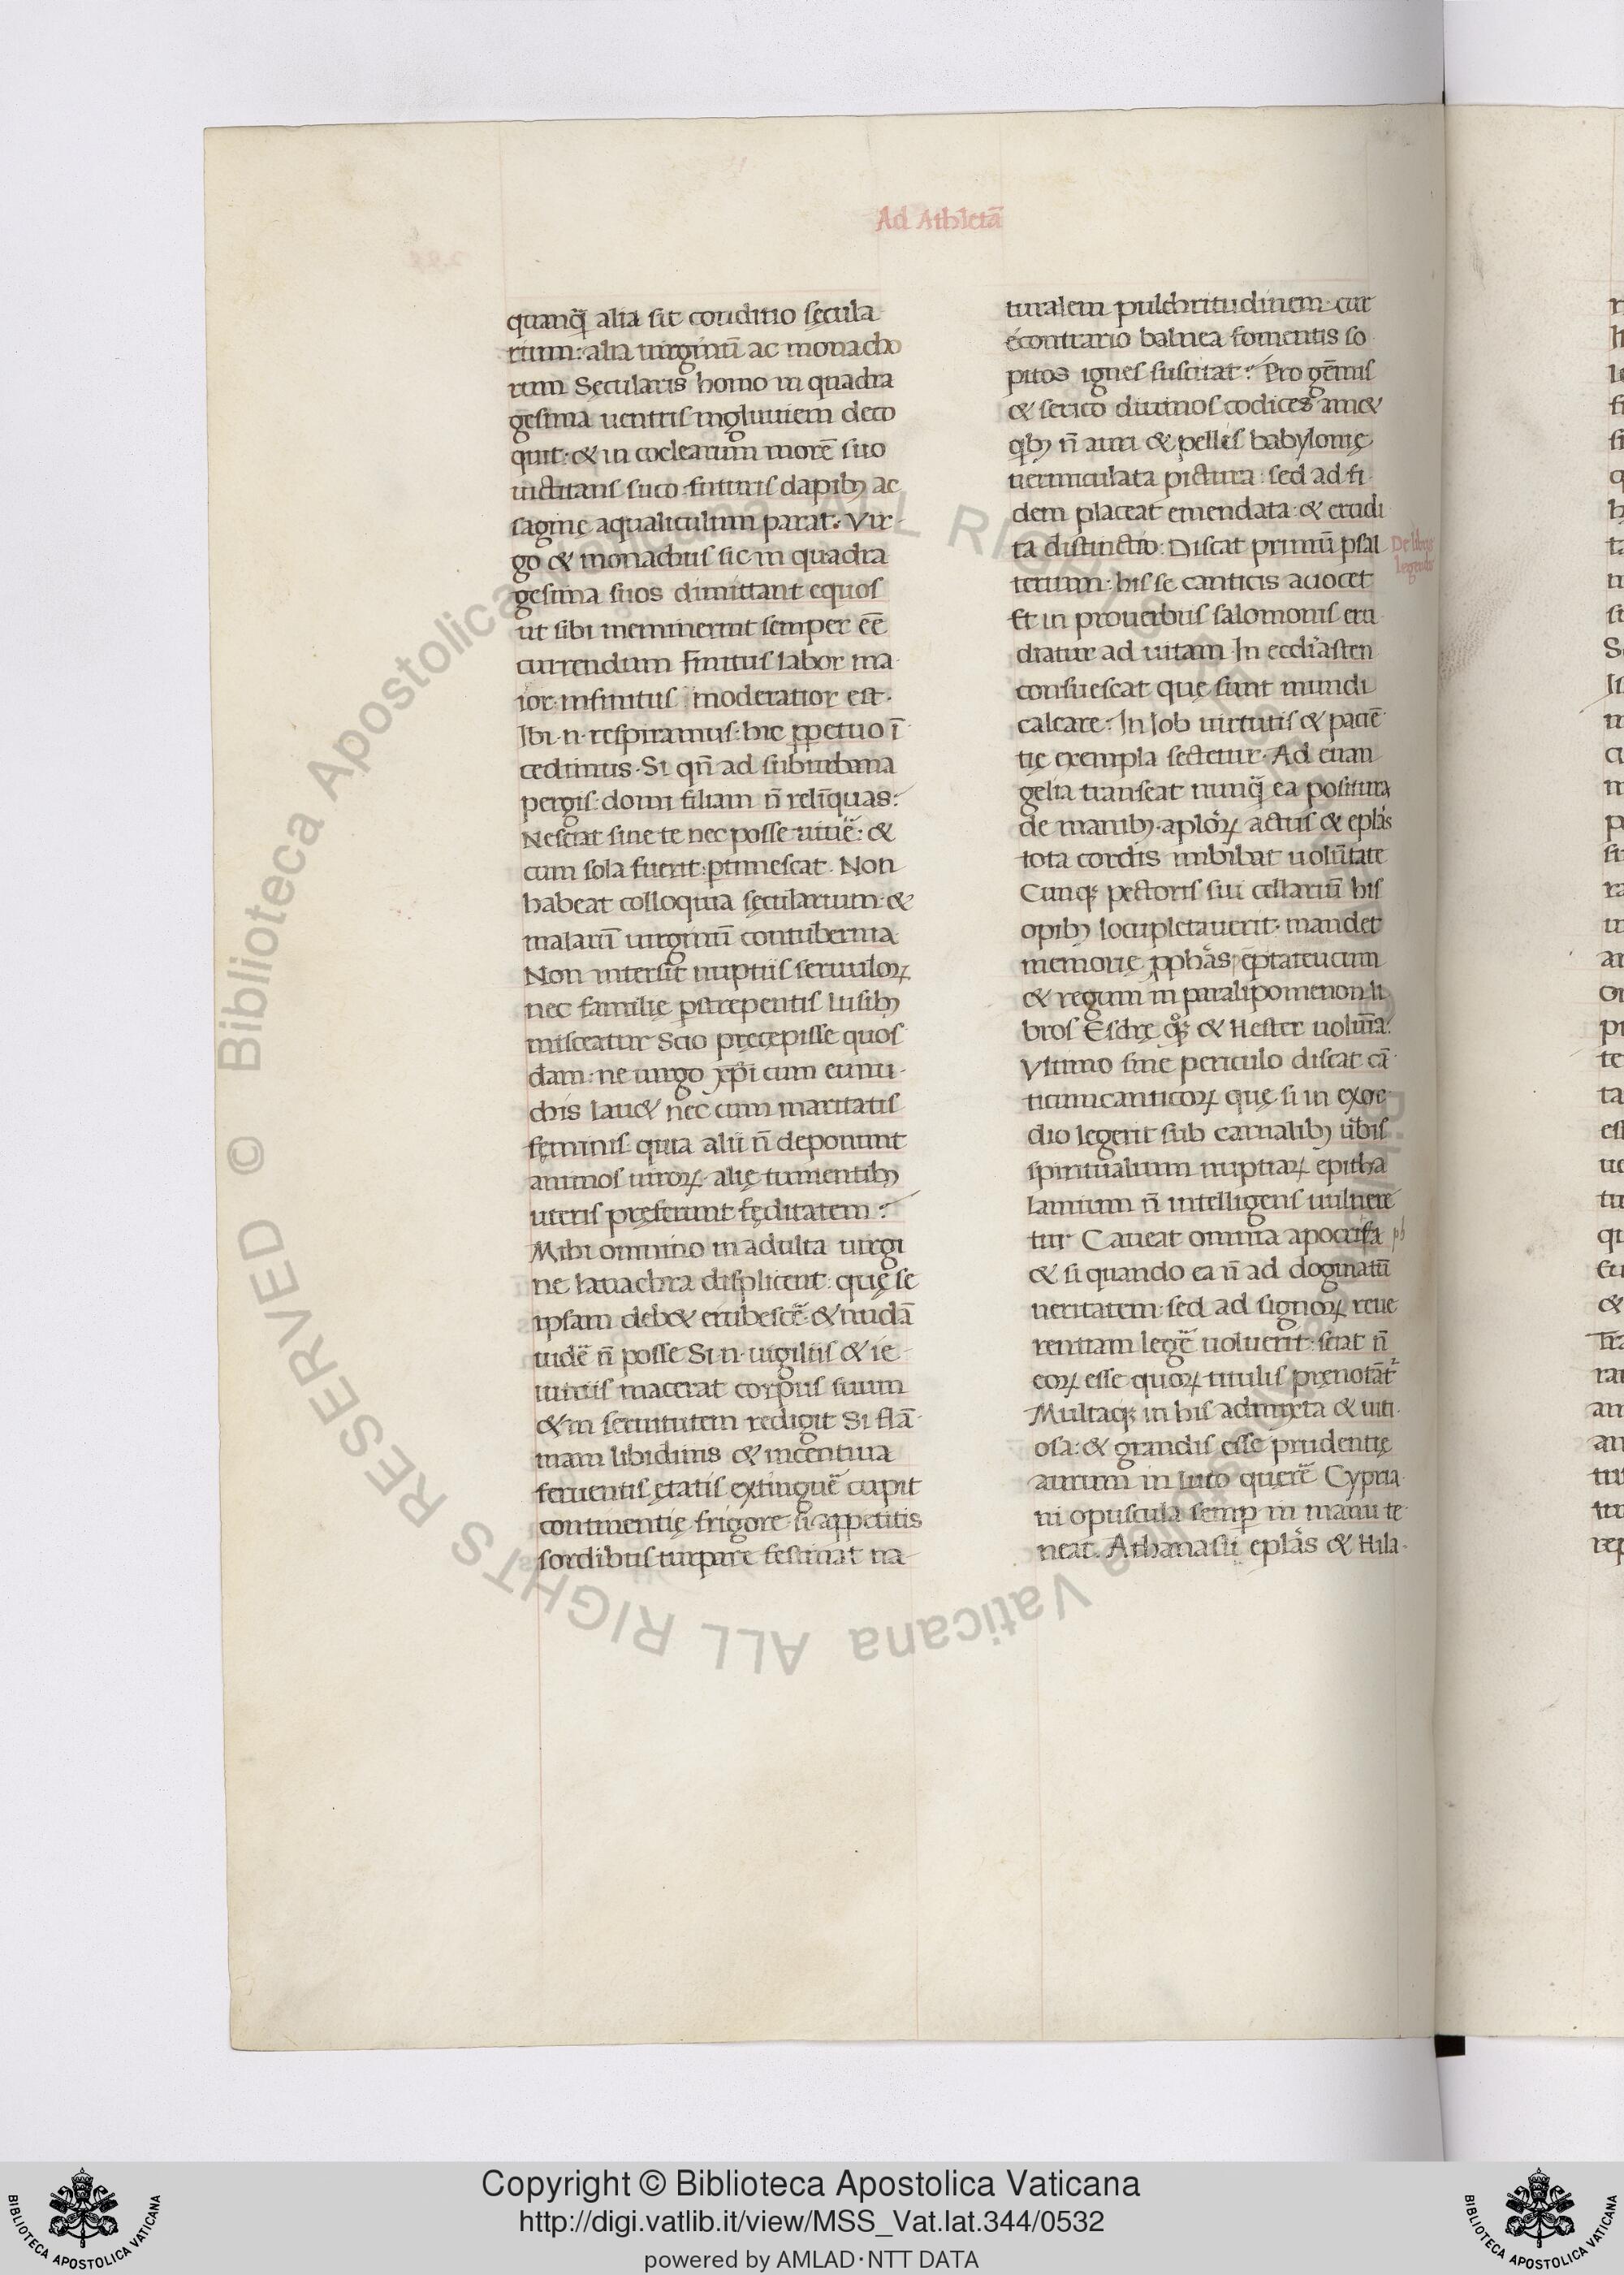 Ad Athletā
quanq̄ alia sit conditio sęcula
rium: alia uirginū ac monacho
rum Sęcularis homo in quadra
gesima uentris ingluuiem deco
quit· & in coclearum morē suo
uictitans suco· futuris dapibꝫ ac
saginę aqualiculum parat. Vir-
go & monachus sic in quadra
gesima suos dimittant equos
ut sibi meminerint semper eē
currendum Finitus labor ma
ior· infinitus moderatior est.
Ibi·n·respiramus: hic ꝑpetuo ī
cedimus·Si qn̄ ad suburbana
pergis: domi filiam n̄ relīquas:
Nesciat sine te nec posse uiuē: &
cum sola fuerit: ꝑtimescat. Non
habeat colloquia sęcularium· &
malarū uirginū contubernia
Non intersit nuptiis seruuloꝝ
nec familię ꝑstrepentis lusibꝫ
misceatur Scio pręcępisse quos
dam: ne uirgo xp̄i cum eunu-
chis lau& nec cum maritatis
fęminis· quia alii n̄ deponunt
animos uiroꝝ· alię tumentibꝫ
uteris pręferunt fęditatem:
Mihi omnino in adulta uirgi
ne lauachra displicent: quę se
ipsam deb& erubescē· & nudā
uidē n̄ posse Si·n·uigiliis & ie-
iuniis macerat corpus suum
& in seruitutem redigit Si flā-
mam libidinis & incentiua
feruentis ętatis extinguē cupit
continentię frigore· si appetitis
sordibus turpare festinat na-
turalem pulchritudinem· cur
écontrario balnea fomentis so
pitos ignes suscitat: Pro gēmis
& serico diuinos codices am&
qꝫbꝫ n̄ auri & pellis babylonię
uermiculata pictura: sed ad fi
dem placeat emendata & erudi
ta distinctio: Discat primū psal
terium: his se canticis auocet
Et in prouerbiis salomonis eru
diatur ad uitam In eccl'iasten
consuescat quę sunt mundi
calcare: In Iob uirtutis & paciē
tię exempla sectetur· Ad euan
gelia transeat nunq̄ ea positura
de manibꝫ· apl'oꝝ actus & epl'as
tota cordis imbibat uolūtate
Cunqꝫ pectoris sui cellariū his
opibꝫ locupletauerit· mandet
memorię ꝓph'as, ēptateucum
& regum in paralipomenon li
bros Esdrę qꝫ & Hester uolum̄a:
Vltimo sine periculo discat cā
ticum canticoꝝ quę si in exor-
dio legerit sub carnalibꝫ ūbis
spiritualium nuptiaꝝ epitha
lamium n̄ intelligens uulnere
tur Caueat omnia apocrifa ph
& si quando ea n̄ ad dogmatū
ueritatem· sed ad signoꝝ reue
rentiam legē uoluerit· sciat n̄
eoꝝ esse quoꝝ titulis pręnotāt᷑
Multaqꝫ in his admixta & uiti
osa: & grandis esse prudentię
aurum in luto querē Cypria
ni opuscula semꝑ in manu te
neat. Athanasii epl'as & Hila-
De libris
legendis
Copyright © Biblioteca Apostolica Vaticana
http://digi.vatlib.it/view/MSS_Vat.lat.344/0532
powered by AMLAD·NTT DATA
BIBLIOTECA APOSTOLICA VATICANA
BIBLIOTECA APOSTOLICA VATICANA
© Biblioteca Apostolica Vaticana ALL RIGHTS RESERVED